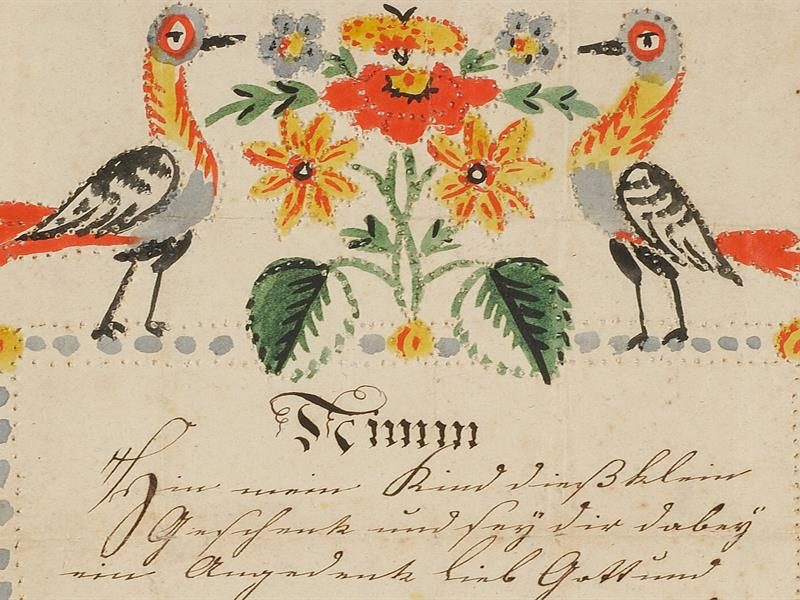 Nimm
Hin mein Kind dieß klein
Geschenk und seÿ dir dabeÿ
ein Angedenk lieb Gott und